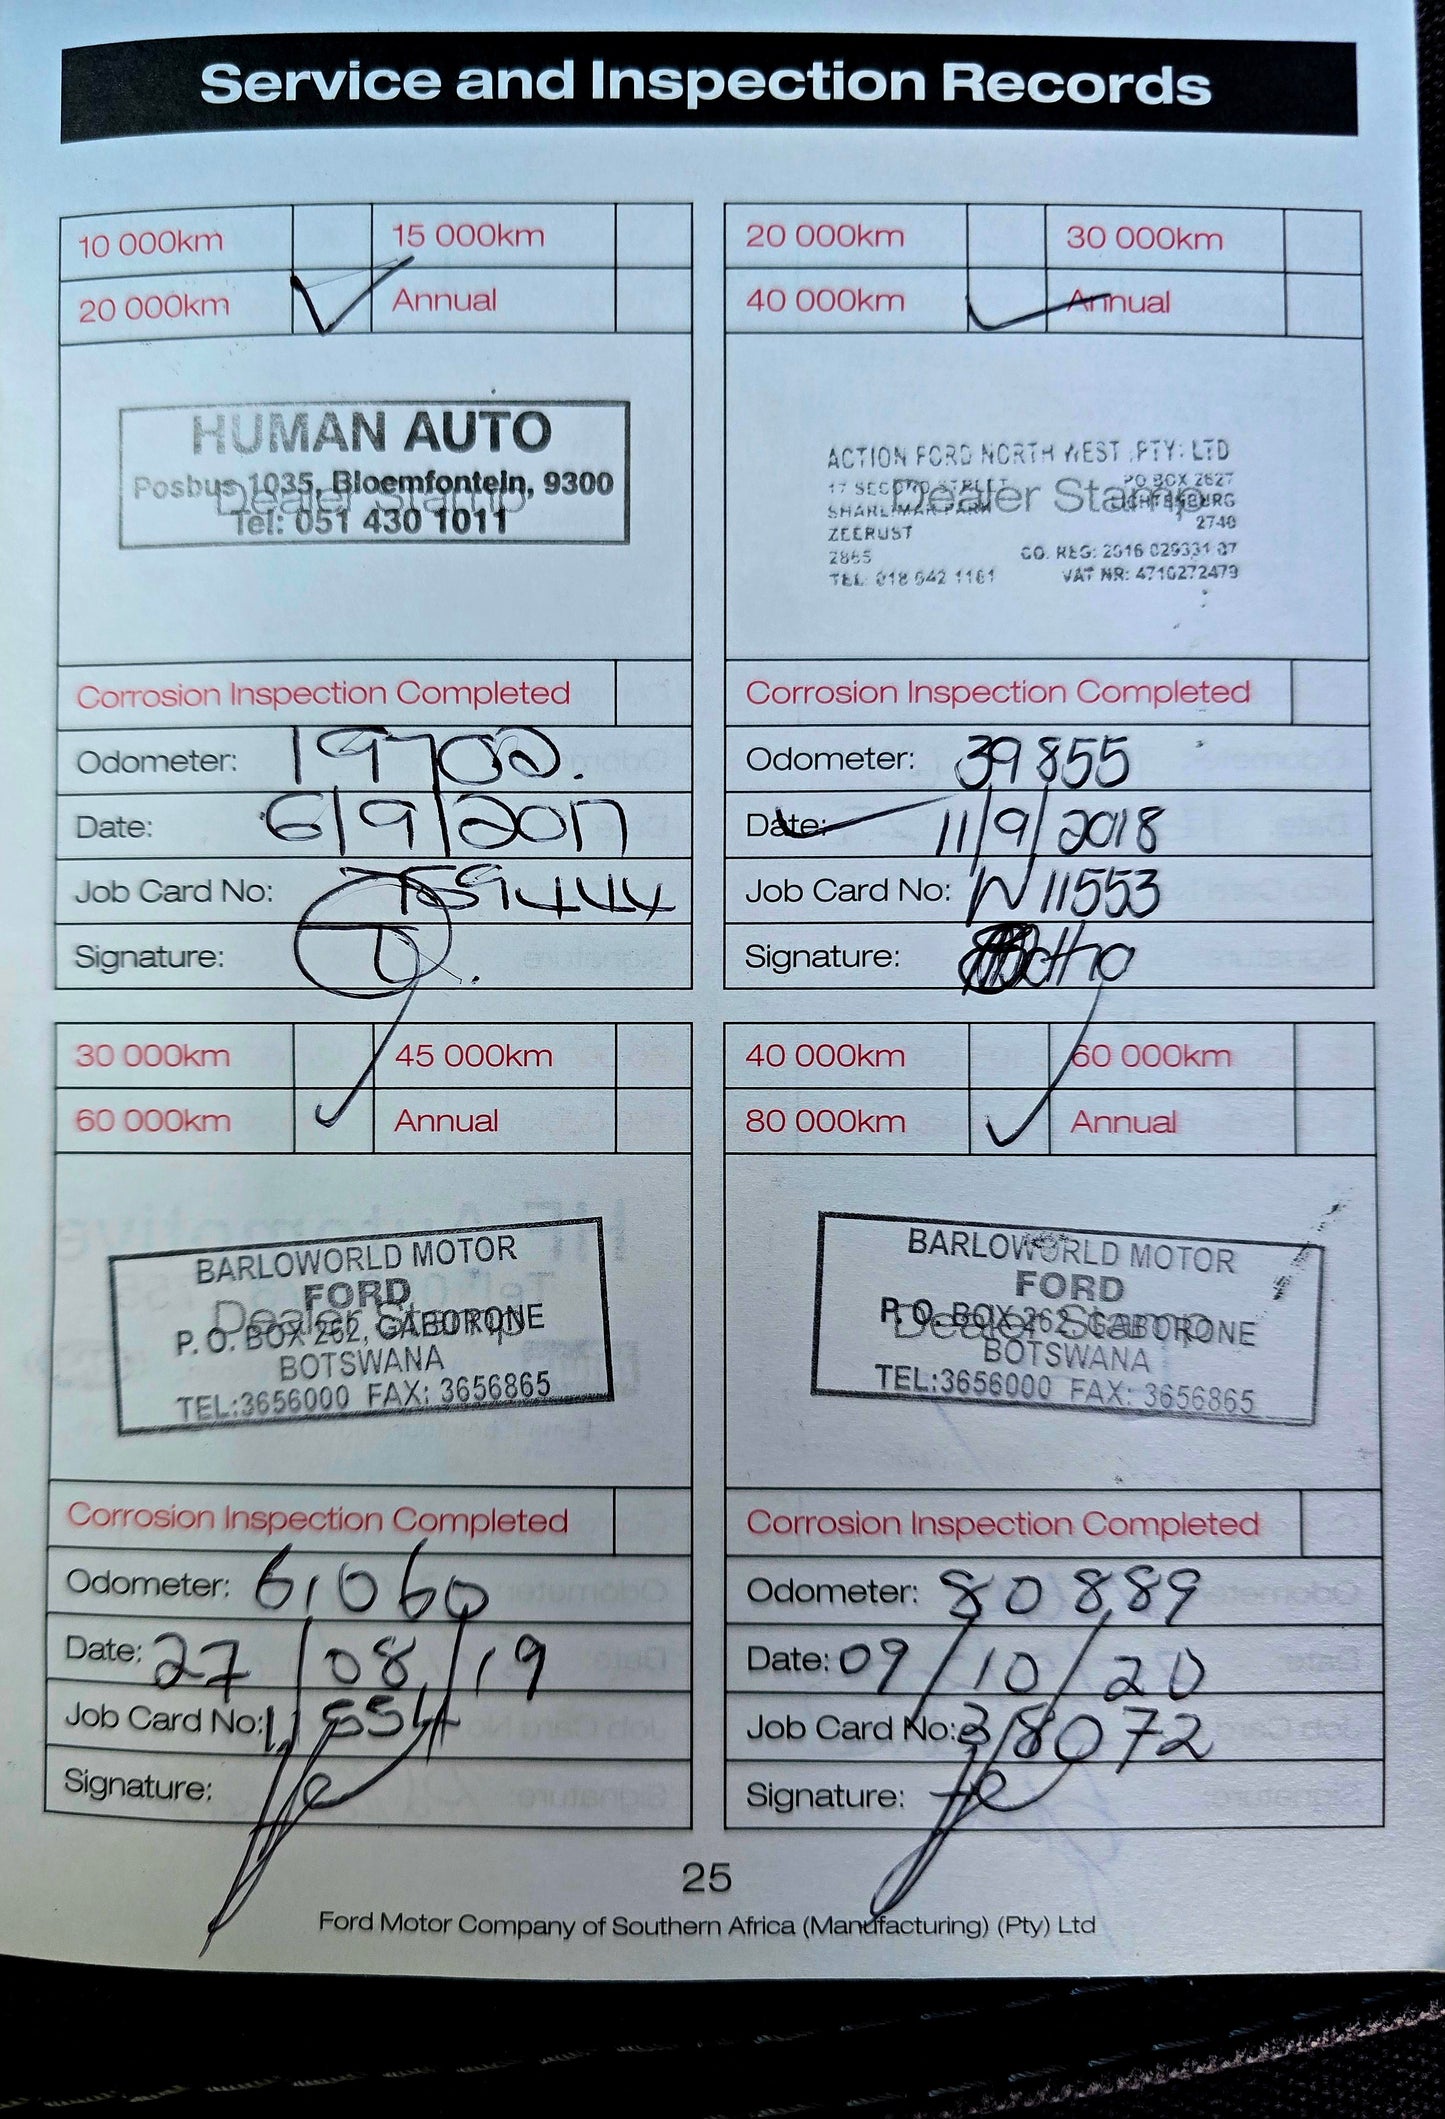 Service and Inspection Records
10 000km 15 000km
20 000km Annual
HUMAN AUTO
Posbus 1035, Bloemfontein, 9300
Dealer Stamp
Tel: 051 430 1011
Corrosion Inspection Completed
Odometer: 19702.
Date: 6/9/2017
Job Card No: 759444
Signature:
20 000km 30 000km
40 000km Annual
ACTION FORD NORTH WEST (PTY) LTD
17 SECOND STREET PO BOX 2627
Dealer Stamp
SHARLIMAR PARK LICHTENBURG
ZEERUST 2740
2865 CO. REG: 2016 029331 07
TEL: 018 642 1161 VAT NR: 4710272479
Corrosion Inspection Completed
Odometer: 39855
Date: 11/9/2018
Job Card No: W11553
Signature:
30 000km 45 000km
60 000km Annual
BARLOWORLD MOTOR
FORD
Dealer Stamp
P. O. BOX 262, GABORONE
BOTSWANA
TEL:3656000 FAX: 3656865
Corrosion Inspection Completed
Odometer: 61060
Date: 27/08/19
Job Card No:
Signature:
40 000km 60 000km
80 000km Annual
BARLOWORLD MOTOR
FORD
Dealer Stamp
P. O. BOX 262, GABORONE
BOTSWANA
TEL:3656000 FAX: 3656865
Corrosion Inspection Completed
Odometer: 80889
Date: 09/10/20
Job Card No: 38072
Signature:
25
Ford Motor Company of Southern Africa (Manufacturing) (Pty) Ltd